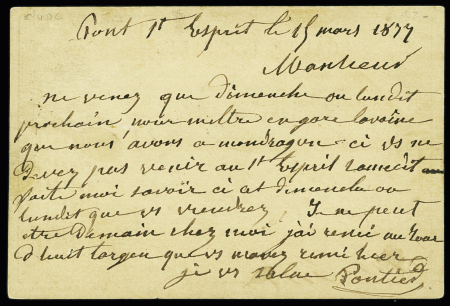 Pont St Esprit le 15 mars 1877
Monsieur
ne venez que dimanche ou lundit
prochain nour mettre en gare lavoine
que nous avons a mondragon ci vs ne
devez pas venir au St Esprit samedit
faite moi savoir ci cet dimanche ou
lundit que vs viendrez Je ne peut
etre demain chez moi j'ai remi au
d huit largen que vs mavez remi hier
je vs salue Pontier